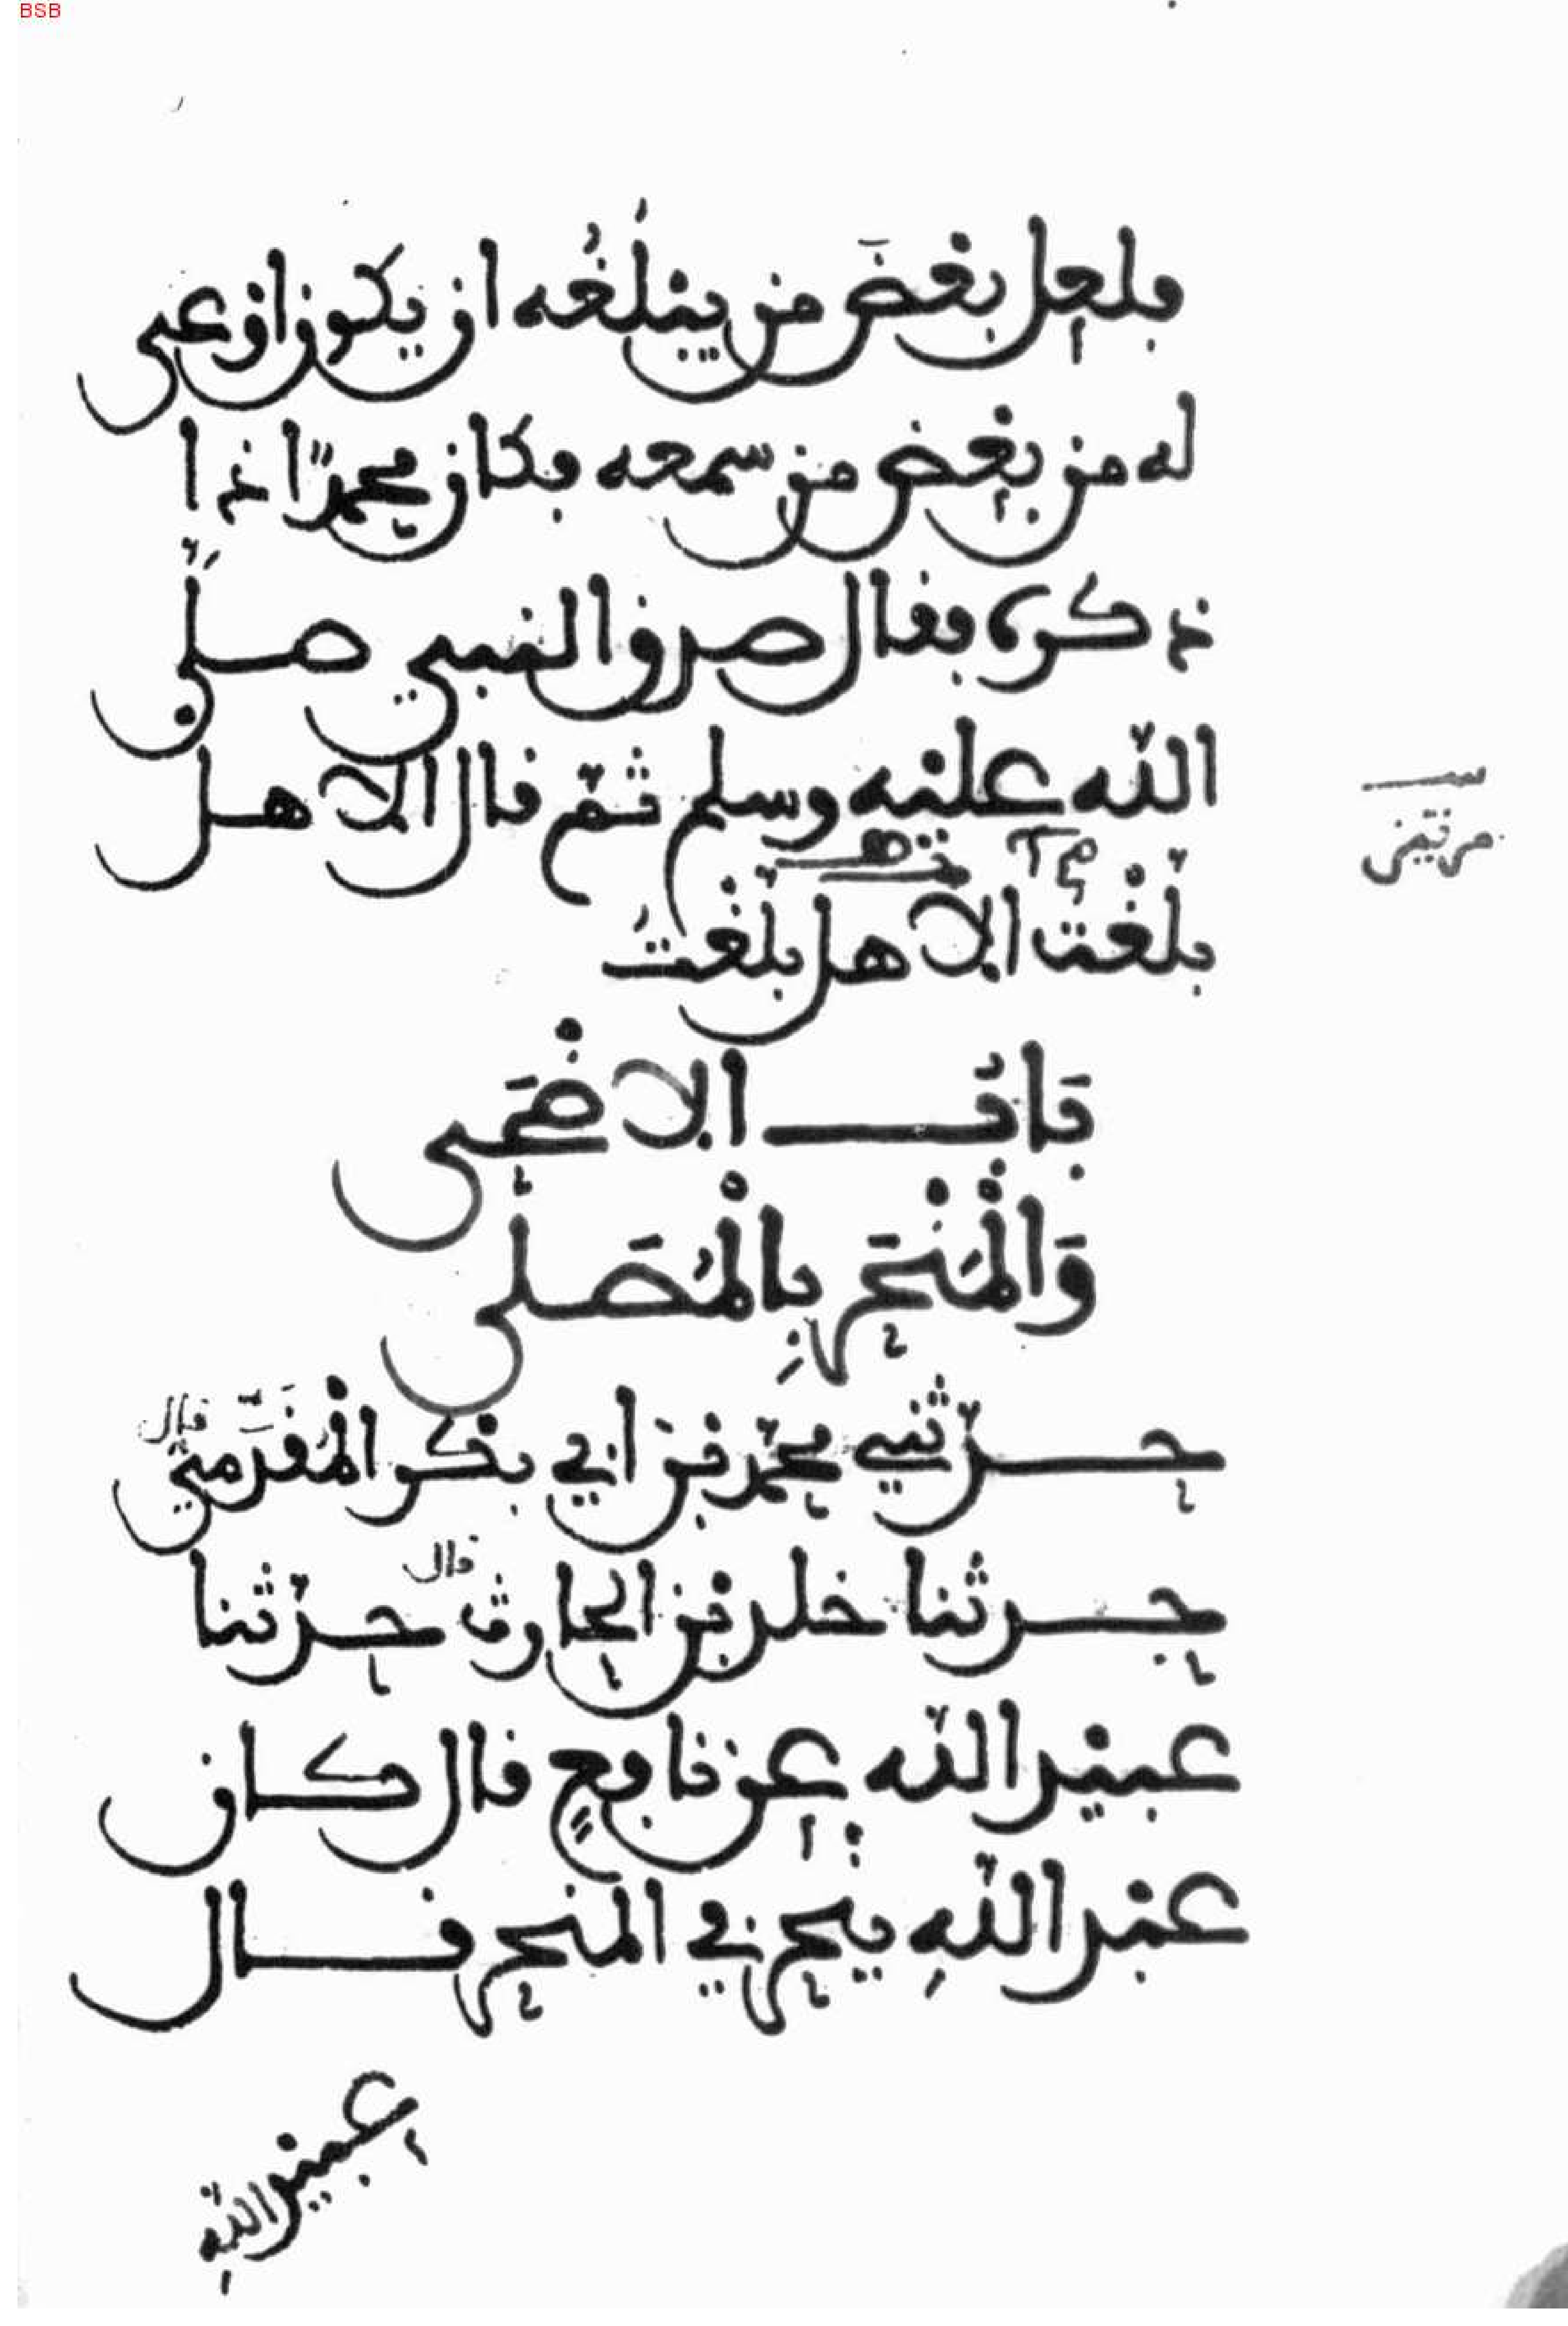 BSB
فلعل بعض من يبلغه ان يكون اوعى
له من بعض من سمعه فكان محمدًا اذا
ذكره فقال صدق النبي صلى
الله عليه وسلم ثم قال الا هل
مرتين
بلغت الا هل بلغت
باب الاضحى
والمنحر بالمصلى
حدثني محمد بن ابي بكر المقدمي قال
حدثنا خلد بن الحارث قال حدثنا
عبيد الله عن نافع قال كان
عبد الله ينحر في المنحر قال
عبيد الله